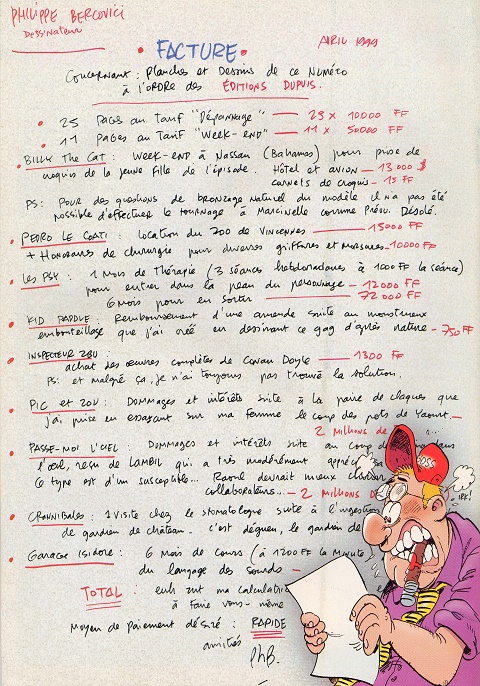 PHILIPPE BERCOVICI
Dessinateur
AVRIL 1999
• FACTURE •
Concernant : Planches et Dessins de ce Numéro
à l'ordre des ÉDITIONS DUPUIS.
• 25 PAGES au TARIF "Dépannage" — 25 x 10000 FF
• 11 PAGES au TARIF "WEEK-END" — 11 x 50000 FF
• BILLY THE CAT : WEEK-END à Nassau (Bahamas) pour prise de
croquis de la jeune fille de l'épisode. Hôtel et avion — 13000 $
carnets de croquis — 15 FF
PS: POUR des questions de bronzage naturel du modèle il n'a pas été
possible d'effectuer le tournage à Marcinelle comme Prévu. Désolé.
• PEDRO LE COATI : Location du ZOO de Vincennes — 15000 FF
+ Honoraires de chirurgie pour diverses griffures et morsures — 10000 FF
• Les PSY : 1 mois de Thérapie (3 séances hebdomadaires à 1000 FF la séance)
pour entrer dans la peau du personnage — 12000 FF
6 mois pour en sortir — 72000 FF
• KID PADDLE : Remboursement d'une amende suite au monstrueux
embouteillage que j'ai créé en dessinant ce gag d'après nature — 750 FF
• INSPECTEUR ZBU :
achat des œuvres complètes de Conan Doyle — 1300 FF
PS: et malgré ça, je n'ai toujours pas trouvé la solution.
• PIC et ZOU : Dommages et intérêts suite à la paire de claques que
j'ai prise en essayant sur ma femme le coup des pots de Yaourt. —
2 MILLIONS de
• PASSE-MOI L'CIEL : Dommages et intérêts suite au coup de dans
l'œil, reçu de LAMBIL qui a très modérément
6 type est d'un susceptible... Raoul devrait mieux choisir
collaborateurs... — 2 MILLIONS D
• CRANNIBALES : 1 visite chez le stomatologue suite à l'ingestion
de gardien de château. c'est dégueu, le gardien de
• GARAGE ISIDORE : 6 mois de cours (à 1200 FF la minute
du langage des sourds —
TOTAL : euh zut ma calculatrice
à faire vous-même
Moyen de paiement désiré : RAPIDE
amitiés
PhB.
BOSS
IRK!